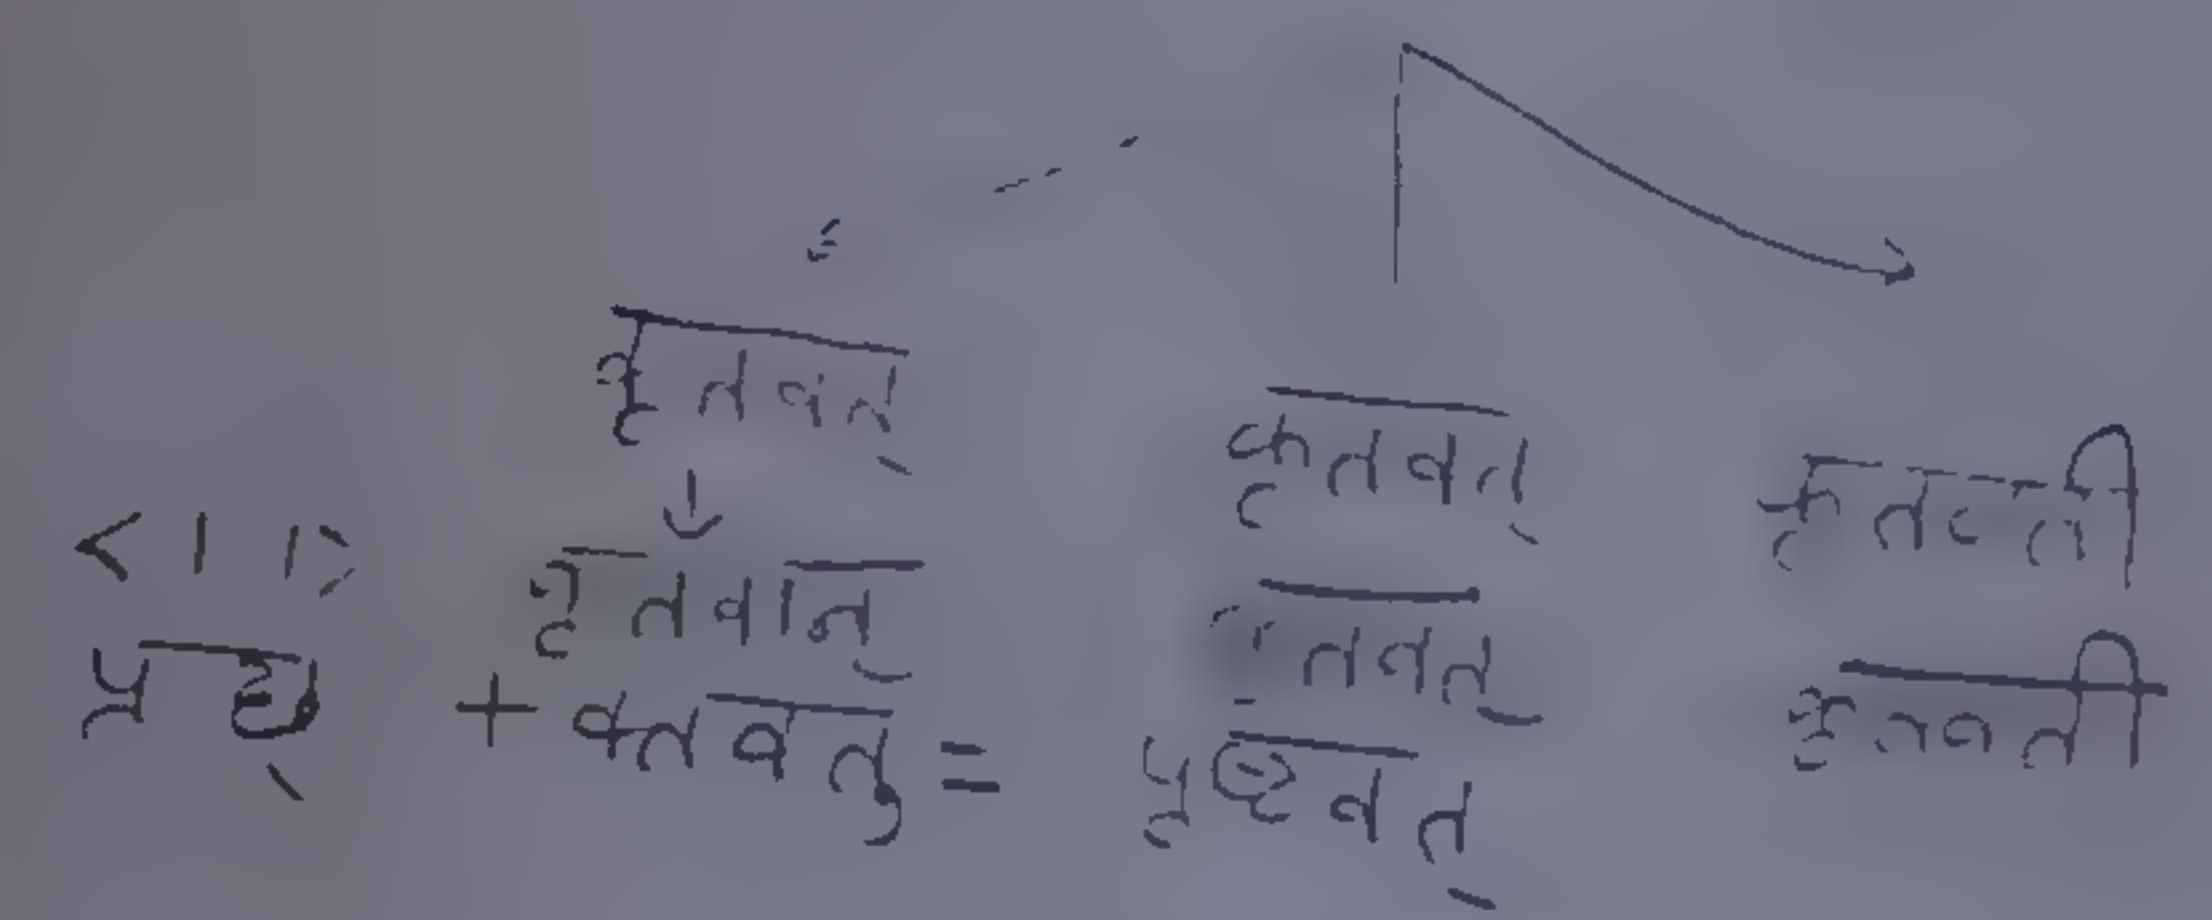 कृतवंत् कृतवत् कृतवती
↓
<। ।> कृतवान् कृतवत् कृतवती
+ क्तवतु = पृष्टवत्